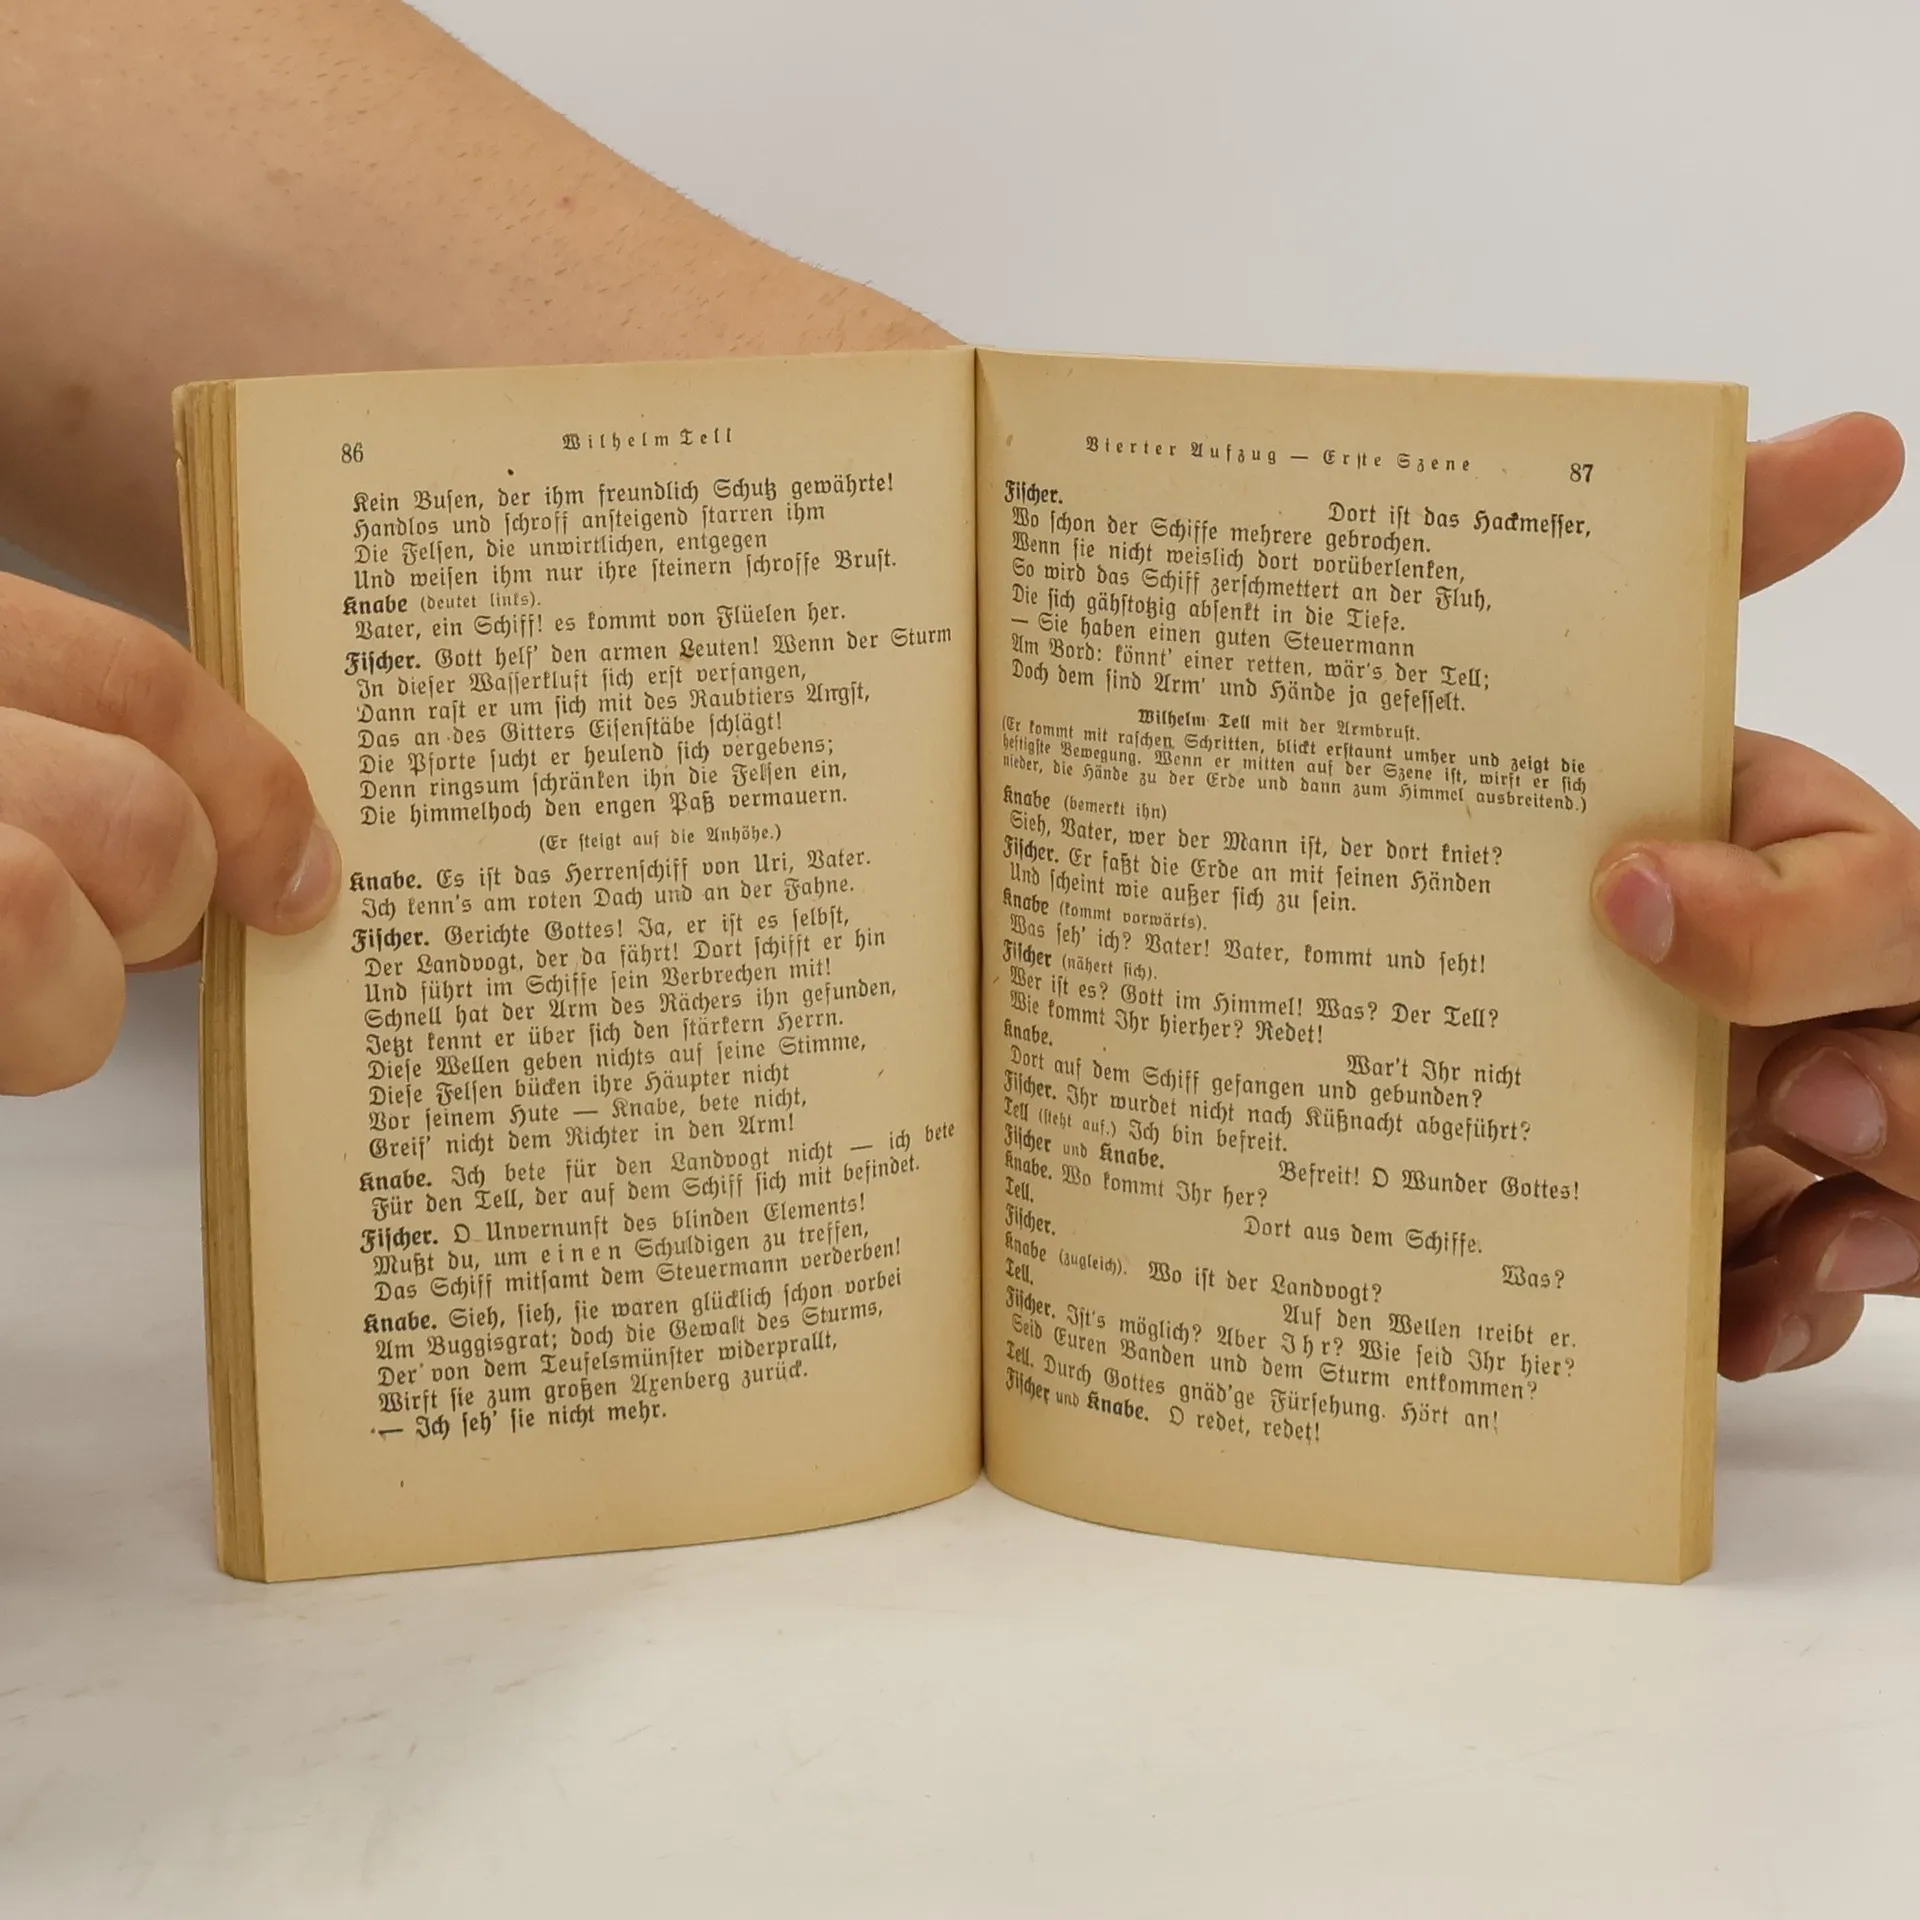 86
Wilhelm Tell
Kein Buſen, der ihm freundlich Schutz gewährte!
Handlos und ſchroff anſteigend ſtarren ihm
Die Felſen, die unwirtlichen, entgegen
Und weiſen ihm nur ihre ſteinern ſchroffe Bruſt.
Knabe (deutet links).
Vater, ein Schiff! es kommt von Flüelen her.
Fiſcher. Gott helf' den armen Leuten! Wenn der Sturm
In dieſer Waſſerkluft ſich erſt verfangen,
Dann raſt er um ſich mit des Raubtiers Angſt,
Das an des Gitters Eiſenſtäbe ſchlägt!
Die Pforte ſucht er heulend ſich vergebens;
Denn ringsum ſchränken ihn die Felſen ein,
Die himmelhoch den engen Paß vermauern.
(Er ſteigt auf die Anhöhe.)
Knabe. Es iſt das Herrenſchiff von Uri, Vater.
Ich kenn's am roten Dach und an der Fahne.
Fiſcher. Gerichte Gottes! Ja, er iſt es ſelbſt,
Der Landvogt, der da fährt! Dort ſchifft er hin
Und führt im Schiffe ſein Verbrechen mit!
Schnell hat der Arm des Rächers ihn gefunden,
Jetzt kennt er über ſich den ſtärkern Herrn.
Dieſe Wellen geben nichts auf ſeine Stimme,
Dieſe Felſen bücken ihre Häupter nicht
Vor ſeinem Hute — Knabe, bete nicht,
Greif' nicht dem Richter in den Arm!
Knabe. Ich bete für den Landvogt nicht — ich bete
Für den Tell, der auf dem Schiff ſich mit befindet.
Fiſcher. O Unvernunft des blinden Elements!
Mußt du, um einen Schuldigen zu treffen,
Das Schiff mitſamt dem Steuermann verderben!
Knabe. Sieh, ſieh, ſie waren glücklich ſchon vorbei
Am Buggisgrat; doch die Gewalt des Sturms,
Der von dem Teufelsmünſter widerprallt,
Wirft ſie zum großen Axenberg zurück.
— Ich ſeh' ſie nicht mehr.
Vierter Aufzug — Erſte Szene
87
Fiſcher.
Dort iſt das Hackmeſſer,
Wo ſchon der Schiffe mehrere gebrochen.
Wenn ſie nicht weislich dort vorüberlenken,
So wird das Schiff zerſchmettert an der Fluh,
Die ſich gähſtotzig abſenkt in die Tiefe.
— Sie haben einen guten Steuermann
Am Bord: könnt' einer retten, wär's der Tell;
Doch dem ſind Arm' und Hände ja gefeſſelt.
Wilhelm Tell mit der Armbruſt.
(Er kommt mit raſchen Schritten, blickt erſtaunt umher und zeigt die
heftigſte Bewegung. Wenn er mitten auf der Szene iſt, wirft er ſich
nieder, die Hände zu der Erde und dann zum Himmel ausbreitend.)
Knabe (bemerkt ihn)
Sieh, Vater, wer der Mann iſt, der dort kniet?
Fiſcher. Er faßt die Erde an mit ſeinen Händen
Und ſcheint wie außer ſich zu ſein.
Knabe (kommt vorwärts).
Was ſeh' ich? Vater! Vater, kommt und ſeht!
Fiſcher (nähert ſich).
Wer iſt es? Gott im Himmel! Was? Der Tell?
Wie kommt Ihr hierher? Redet!
Knabe.
War't Ihr nicht
Dort auf dem Schiff gefangen und gebunden?
Fiſcher. Ihr wurdet nicht nach Küßnacht abgeführt?
Tell (ſteht auf.) Ich bin befreit.
Fiſcher und Knabe.
Befreit! O Wunder Gottes!
Knabe. Wo kommt Ihr her?
Tell.
Dort aus dem Schiffe.
Fiſcher.
Was?
Knabe (zugleich). Wo iſt der Landvogt?
Tell.
Auf den Wellen treibt er.
Fiſcher. Iſt's möglich? Aber Ihr? Wie ſeid Ihr hier?
Seid Euren Banden und dem Sturm entkommen?
Tell. Durch Gottes gnäd'ge Fürſehung. Hört an!
Fiſcher und Knabe. O redet, redet!